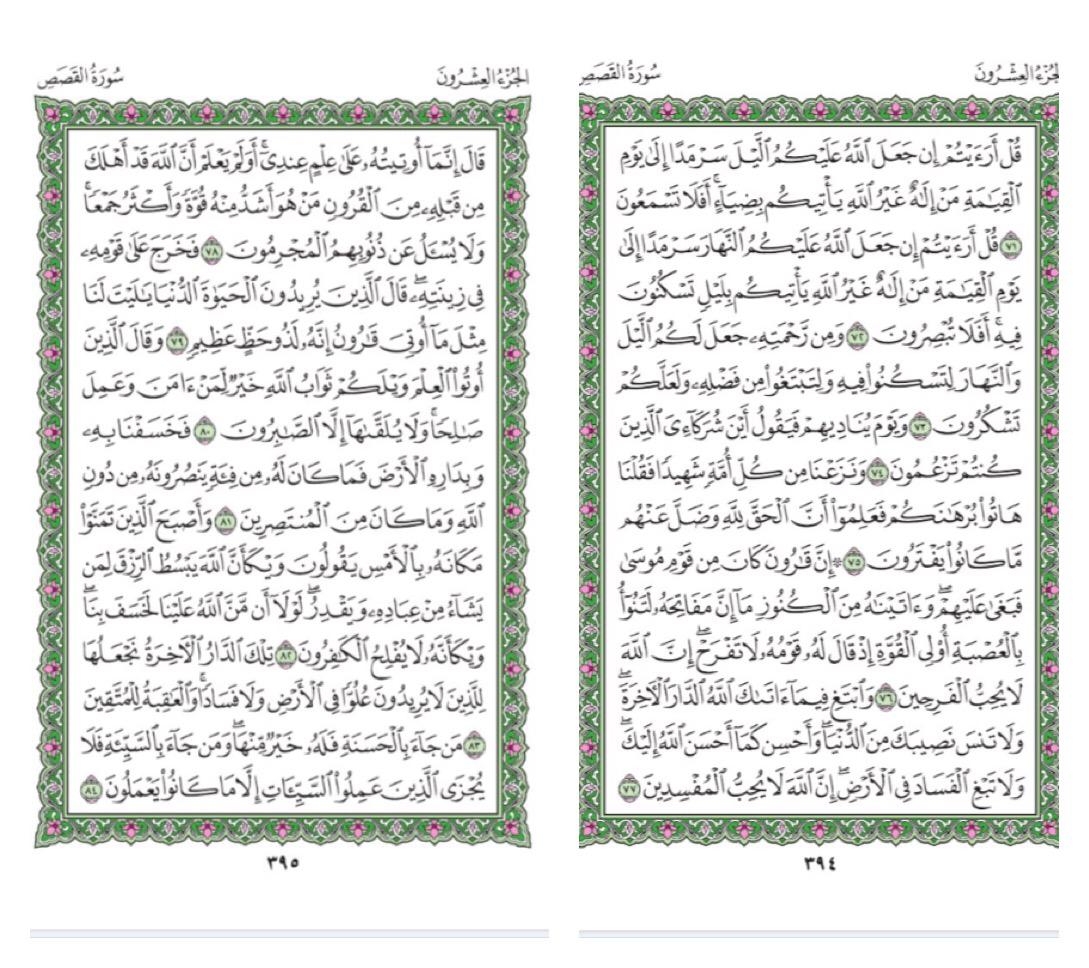 الجُزْءُ العِشْرُونَ سُورَةُ القَصَصِ
قُلْ أَرَءَيْتُمْ إِن جَعَلَ ٱللَّهُ عَلَيْكُمُ ٱلَّيْلَ سَرْمَدًا إِلَىٰ يَوْمِ
ٱلْقِيَٰمَةِ مَنْ إِلَٰهٌ غَيْرُ ٱللَّهِ يَأْتِيكُم بِضِيَآءٍ ۖ أَفَلَا تَسْمَعُونَ
٧١ قُلْ أَرَءَيْتُمْ إِن جَعَلَ ٱللَّهُ عَلَيْكُمُ ٱلنَّهَارَ سَرْمَدًا إِلَىٰ
يَوْمِ ٱلْقِيَٰمَةِ مَنْ إِلَٰهٌ غَيْرُ ٱللَّهِ يَأْتِيكُم بِلَيْلٍ تَسْكُنُونَ
فِيهِ ۖ أَفَلَا تُبْصِرُونَ ٧٢ وَمِن رَّحْمَتِهِۦ جَعَلَ لَكُمُ ٱلَّيْلَ
وَٱلنَّهَارَ لِتَسْكُنُوا۟ فِيهِ وَلِتَبْتَغُوا۟ مِن فَضْلِهِۦ وَلَعَلَّكُمْ
تَشْكُرُونَ ٧٣ وَيَوْمَ يُنَادِيهِمْ فَيَقُولُ أَيْنَ شُرَكَآءِىَ ٱلَّذِينَ
كُنتُمْ تَزْعُمُونَ ٧٤ وَنَزَعْنَا مِن كُلِّ أُمَّةٍ شَهِيدًا فَقُلْنَا
هَاتُوا۟ بُرْهَٰنَكُمْ فَعَلِمُوٓا۟ أَنَّ ٱلْحَقَّ لِلَّهِ وَضَلَّ عَنْهُم
مَّا كَانُوا۟ يَفْتَرُونَ ٧٥ ۞ إِنَّ قَٰرُونَ كَانَ مِن قَوْمِ مُوسَىٰ
فَبَغَىٰ عَلَيْهِمْ ۖ وَءَاتَيْنَٰهُ مِنَ ٱلْكُنُوزِ مَآ إِنَّ مَفَاتِحَهُۥ لَتَنُوٓأُ
بِٱلْعُصْبَةِ أُو۟لِى ٱلْقُوَّةِ إِذْ قَالَ لَهُۥ قَوْمُهُۥ لَا تَفْرَحْ ۖ إِنَّ ٱللَّهَ
لَا يُحِبُّ ٱلْفَرِحِينَ ٧٦ وَٱبْتَغِ فِيمَآ ءَاتَىٰكَ ٱللَّهُ ٱلدَّارَ ٱلْـَٔاخِرَةَ ۖ
وَلَا تَنسَ نَصِيبَكَ مِنَ ٱلدُّنْيَا ۖ وَأَحْسِن كَمَآ أَحْسَنَ ٱللَّهُ إِلَيْكَ ۖ
وَلَا تَبْغِ ٱلْفَسَادَ فِى ٱلْأَرْضِ ۖ إِنَّ ٱللَّهَ لَا يُحِبُّ ٱلْمُفْسِدِينَ ٧٧
٣٩٤
الجُزْءُ العِشْرُونَ سُورَةُ القَصَصِ
قَالَ إِنَّمَآ أُوتِيتُهُۥ عَلَىٰ عِلْمٍ عِندِىٓ ۚ أَوَلَمْ يَعْلَمْ أَنَّ ٱللَّهَ قَدْ أَهْلَكَ
مِن قَبْلِهِۦ مِنَ ٱلْقُرُونِ مَنْ هُوَ أَشَدُّ مِنْهُ قُوَّةً وَأَكْثَرُ جَمْعًا ۚ
وَلَا يُسْـَٔلُ عَن ذُنُوبِهِمُ ٱلْمُجْرِمُونَ ٧٨ فَخَرَجَ عَلَىٰ قَوْمِهِۦ
فِى زِينَتِهِۦ ۖ قَالَ ٱلَّذِينَ يُرِيدُونَ ٱلْحَيَوٰةَ ٱلدُّنْيَا يَٰلَيْتَ لَنَا
مِثْلَ مَآ أُوتِىَ قَٰرُونُ إِنَّهُۥ لَذُو حَظٍّ عَظِيمٍ ٧٩ وَقَالَ ٱلَّذِينَ
أُوتُوا۟ ٱلْعِلْمَ وَيْلَكُمْ ثَوَابُ ٱللَّهِ خَيْرٌ لِّمَنْ ءَامَنَ وَعَمِلَ
صَٰلِحًا ۚ وَلَا يُلَقَّىٰهَآ إِلَّا ٱلصَّٰبِرُونَ ٨٠ فَخَسَفْنَا بِهِۦ
وَبِدَارِهِ ٱلْأَرْضَ فَمَا كَانَ لَهُۥ مِن فِئَةٍ يَنصُرُونَهُۥ مِن دُونِ
ٱللَّهِ وَمَا كَانَ مِنَ ٱلْمُنتَصِرِينَ ٨١ وَأَصْبَحَ ٱلَّذِينَ تَمَنَّوْا۟
مَكَانَهُۥ بِٱلْأَمْسِ يَقُولُونَ وَيْكَأَنَّ ٱللَّهَ يَبْسُطُ ٱلرِّزْقَ لِمَن
يَشَآءُ مِنْ عِبَادِهِۦ وَيَقْدِرُ ۖ لَوْلَآ أَن مَّنَّ ٱللَّهُ عَلَيْنَا لَخَسَفَ بِنَا ۖ
وَيْكَأَنَّهُۥ لَا يُفْلِحُ ٱلْكَٰفِرُونَ ٨٢ تِلْكَ ٱلدَّارُ ٱلْـَٔاخِرَةُ نَجْعَلُهَا
لِلَّذِينَ لَا يُرِيدُونَ عُلُوًّا فِى ٱلْأَرْضِ وَلَا فَسَادًا ۚ وَٱلْعَٰقِبَةُ لِلْمُتَّقِينَ
٨٣ مَن جَآءَ بِٱلْحَسَنَةِ فَلَهُۥ خَيْرٌ مِّنْهَا ۖ وَمَن جَآءَ بِٱلسَّيِّئَةِ فَلَا
يُجْزَى ٱلَّذِينَ عَمِلُوا۟ ٱلسَّيِّـَٔاتِ إِلَّا مَا كَانُوا۟ يَعْمَلُونَ ٨٤
٣٩٥